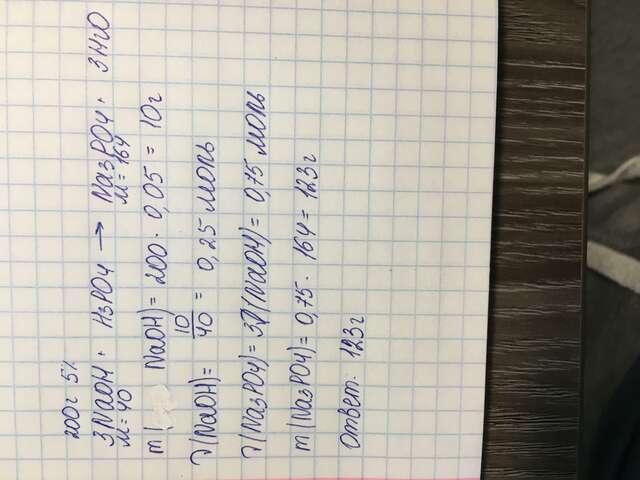 200г 5%
3NaOH + H3PO4 → Na3PO4 + 3H2O
M=40 M=164
m(NaOH) = 200 · 0,05 = 10г
ν(NaOH) = 10/40 = 0,25 моль
ν(Na3PO4) = 3ν(NaOH) = 0,75 моль
m(Na3PO4) = 0,75 · 164 = 123г
Ответ: 123г